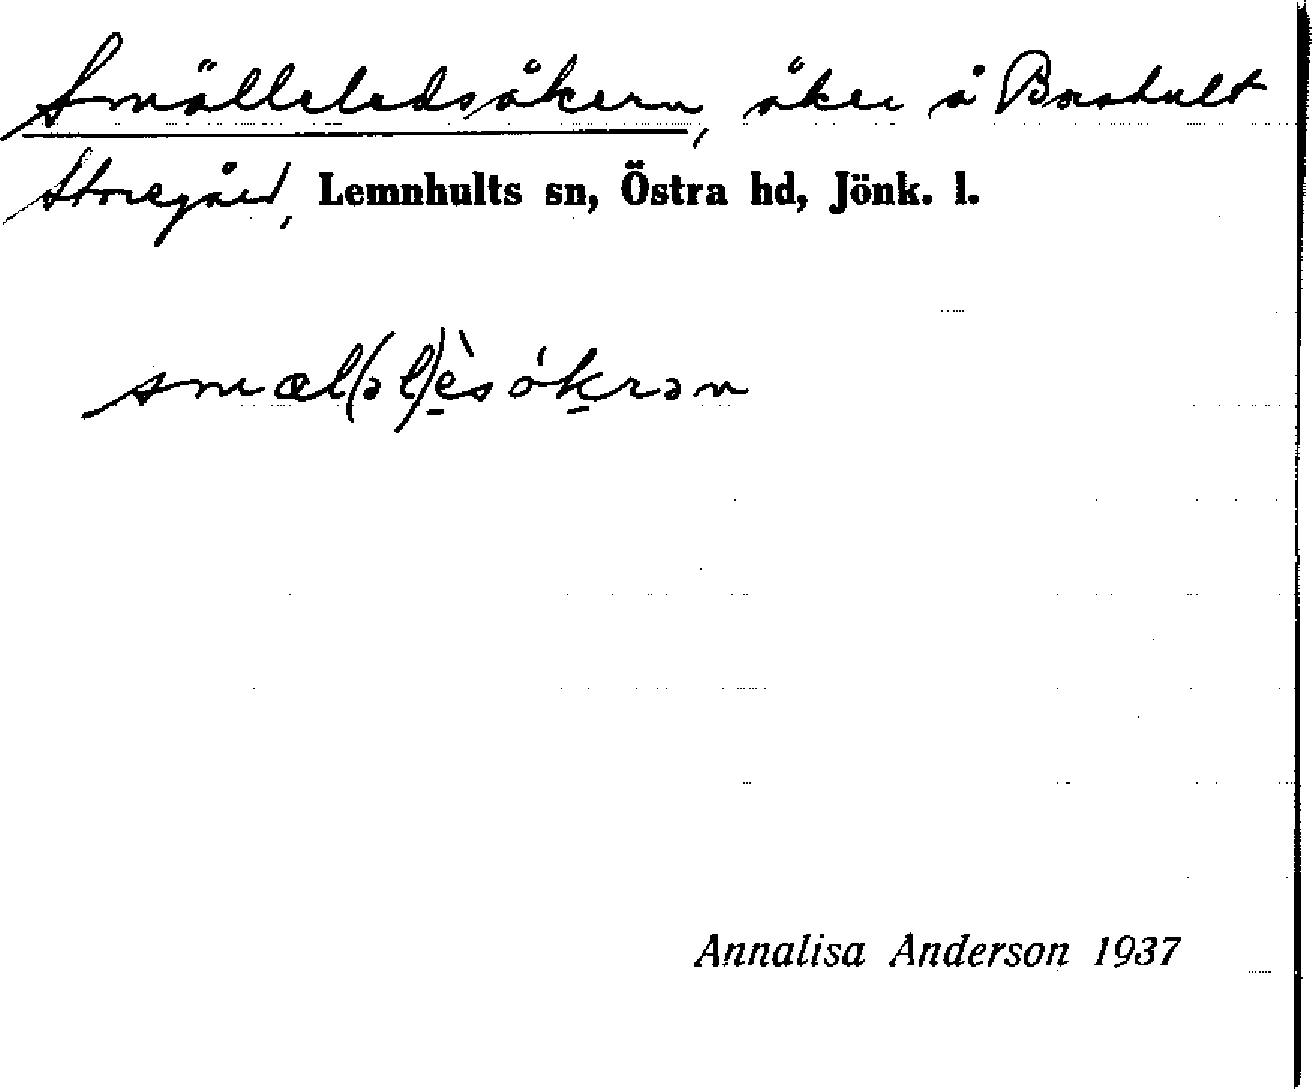 Smälleledsåkern, åker å Boahult
Storegård, Lemnhults sn, Östra hd, Jönk. l.
smæl(əl)èsókrən
Annalisa Anderson 1937